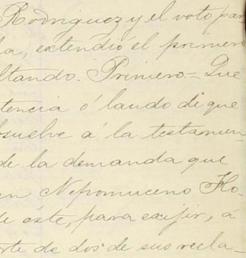 Rodriguez y el voto par
la, extendió el primero
ltando. Primero = Que
tencia ó laudo di que
bsuelve á la testamen-
de la demanda que
en Nepomuceno Ho-
de éste, para exijir, a
rte de dos de sus recla-